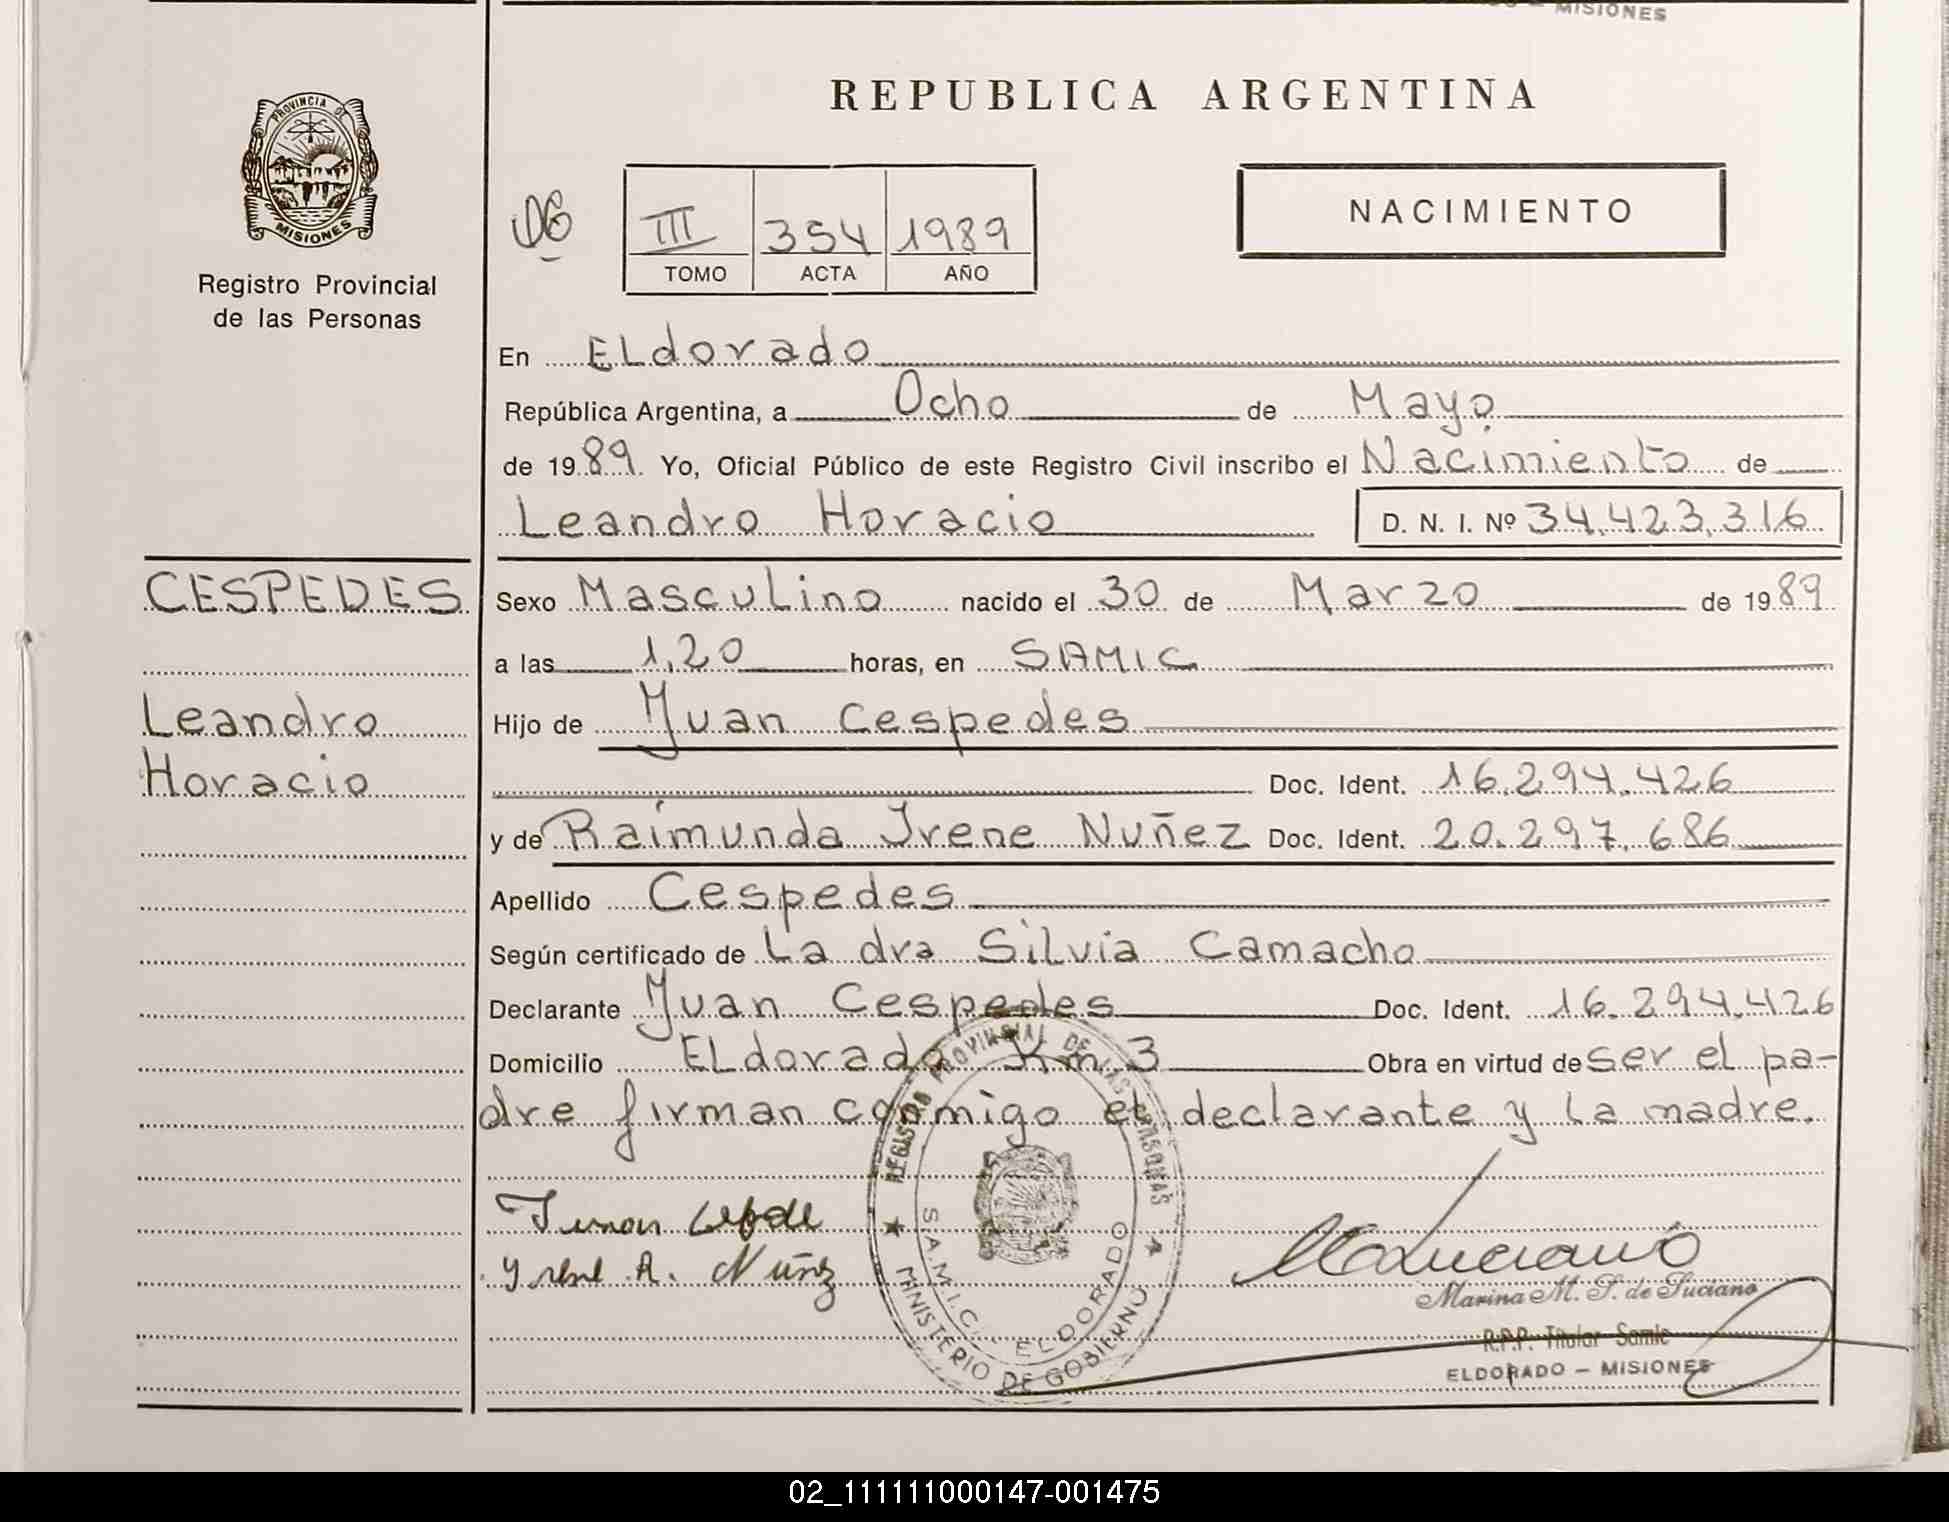 MISIONES
REPUBLICA ARGENTINA
PROVINCIA DE
MISIONES
Registro Provincial
de las Personas
III 354 1989
TOMO ACTA AÑO
NACIMIENTO
En ELdorado
República Argentina, a Ocho de Mayo
de 1989. Yo, Oficial Público de este Registro Civil inscribo el Nacimiento de
Leandro Horacio D. N. I. Nº 34.423.316
CESPEDES
Leandro
Horacio
Sexo Masculino nacido el 30 de Marzo de 1989
a las 1,20 horas, en SAMIC
Hijo de Juan Cespedes
Doc. Ident. 16.294.426
y de Raimunda Irene Nuñez Doc. Ident. 20.297.686
Apellido Cespedes
Según certificado de La dra Silvia Camacho
Declarante Juan Cespedes Doc. Ident. 16.294.426
Domicilio ELdorado Km 3 Obra en virtud de ser el pa-
dre firman conmigo el declarante y La madre.
REGISTRO PROVINCIAL DE LAS PERSONAS
S.A.M.I.C. ELDORADO
MINISTERIO DE GOBIERNO
Yrene R. Núñez
Marina M. S. de Luciano
R.P.P. Titular Samic
ELDORADO – MISIONES
02_111111000147-001475